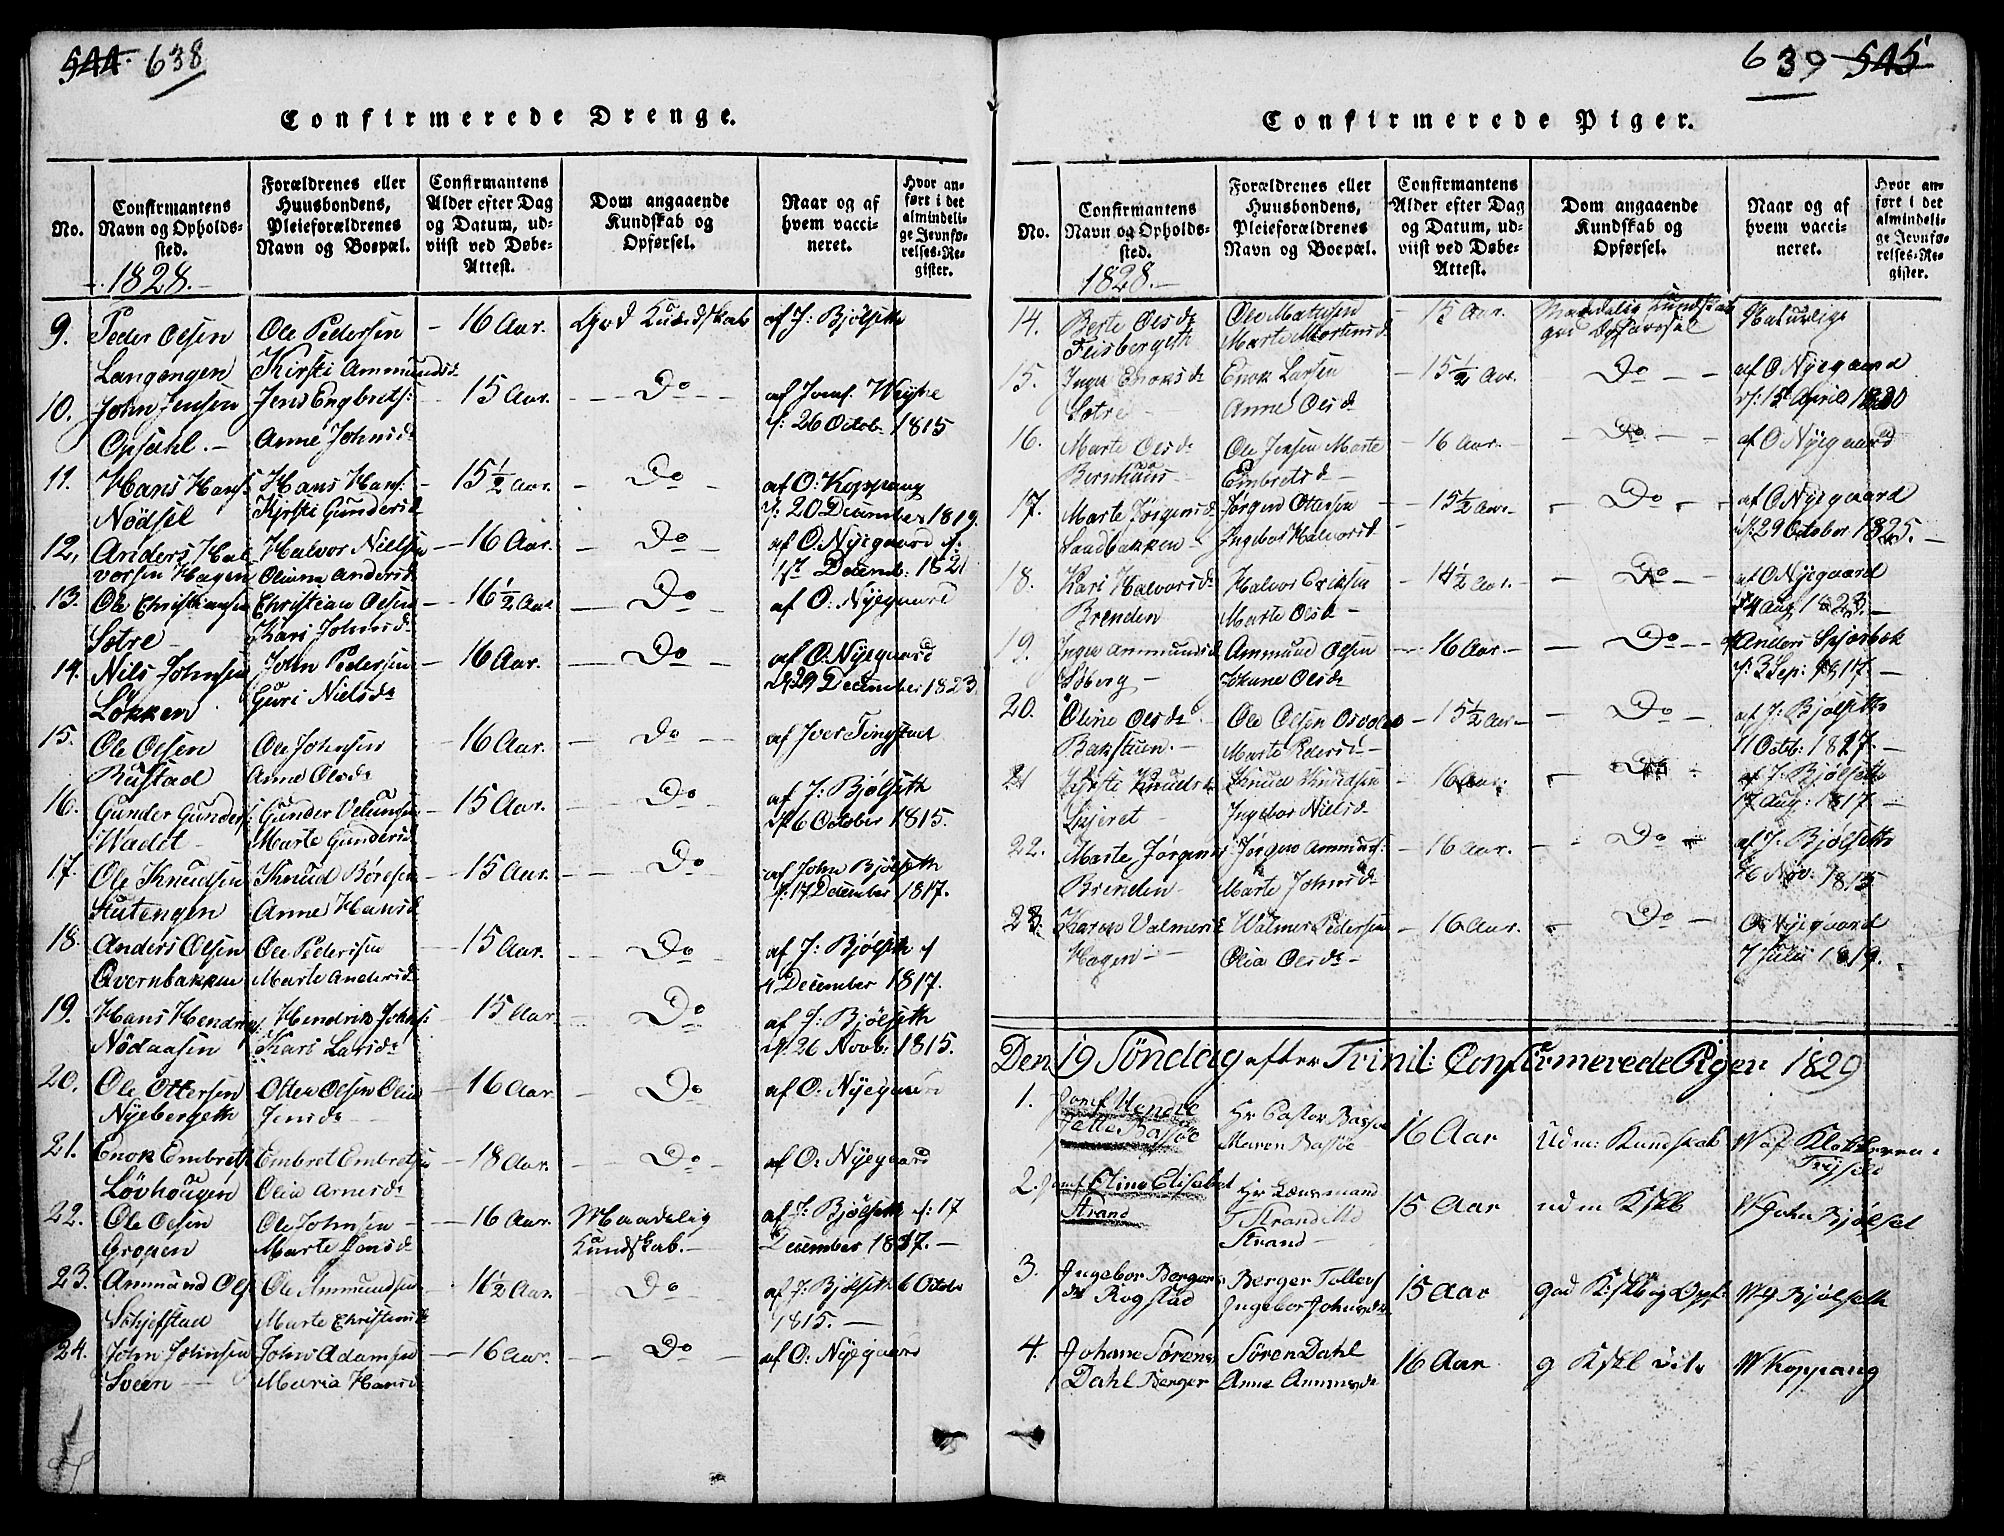 544. 638
Confirmerede Drenge.
No.
Confirmantens Navn og Opholdssted.
1828.
Forældrenes eller Huusbondens, Pleieforældrenes Navn og Boepæl.
Confirmantens Alder efter Dag og Datum, udviist ved Døbe-Attest.
Dom angaaende Kundskab og Opførsel.
Naar og af hvem vaccineret.
Hvor anført i det almindelige Jevnførelses-Register.
9. Peder Olsen Ole Pedersen 16 Aar. God Kundskab af J: Bjølseth
Langengen Kirsti Ammundsd
10. John Jensen Jens Engbrets: 15 Aar. Do af Jomf. Weyhe
Opsahl. Anne Johnsd 26 Octob. 1815
11. Hans Hans: Hans Hans: 15 1/2 Aar. Do af O: Koppang
Nödsel Kjrsti Gundersd 20 December 1819.
12. Anders Hal Halvor Nielsen 16 Aar. Do af O. Nyegaard
vorsen Hagen Andersd 1st Decemb: 1821
13. Ole Christiansen Christian Olsen 16 1/2 Aar Do af O: Nyegaard
Sætre Kari Johnsd
14. Nils Johnsen John Pedersen 16 Aar. Do af O: Nyegaard
Løkken Guri Nielsd 29 December 1823.
15. Ole Olsen Ole Johnsen 16 Aar. Do af Iver Tingstad
Rustad Anne Olsd
16. Gunder Gunders: Gunder 15 Aar. Do af J: Bjølseth
Wadet Marte Gundersd 6 October 1815.
17. Ole Knudsen Knud Børesen 15 Aar. Do af John Bjølseth
Stutengen Anne Hansd 17 December 1817.
18. Anders Olsen Ole Pedersen 15 Aar. Do af J: Bjølseth
Qvernbakken Marte Andersd 4 December 1817.
19. Hans Hendrichs: Hendrik Johns: 15 Aar. Do af J: Bjølseth
Nödaasen Kari Larsd 26 Novb: 1815.
20. Ole Ottersen Otter Olsen Olia 16 Aar. Do af O: Nyegaard
Nyebergeth Jensd
21. Enok Embrets Embret Embretsen 18 Aar. Do af O: Nyegaard
Lövhougen Olia Arnesd
22. Ole Olsen Ole Johnsen 16 Aar. Maadelig af J: Bjølseth 17
Gropen Marte Kundskab. December 1817.
23. Ammund Ols Ole Ammundsen 16 1/2 Aar. Do af J: Bjølseth 6 Octobr
Marte Christensd 1815.
24. John Johnsen John Adamsen 16 Aar. Do af O: Nyegaard
Sveen Maria Hansd
639 545
Confirmerede Piger.
No.
Confirmantens Navn og Opholdssted.
1828.
Forældrenes eller Huusbondens, Pleieforældrenes Navn og Boepæl.
Confirmantens Alder efter Dag og Datum, udviist ved Døbe-Attest.
Dom angaaende Kundskab og Opførsel.
Naar og af hvem vaccineret.
Hvor anført i det almindelige Jevnførelses-Register.
14. Berte Olsd Ole Matisen 15 Aar. Maadelig Kundskab Naturlige
Feisbergeth Marte Mortensd god Opførsel
15. Inger Enoksd Enok Larsen 15 1/2 Aar. Do af O Nyegaard
Sætre Anne Olsd 15 April 1820
16. Marte Olsd Ole Jensen Marte 16 Aar. Do af O Nyegaard
Bernhuus Embretsd
17. Marte Jörgensd Jørgen Ottersen 15 1/2 Aar. Do af O Nyegaard
Sandbakken Ingebor Halvorsd 29 October 1825.
18. Kari Halvorsd Halvor Eriksen 14 1/2 Aar. Do af O Nyegaard
Brenden Marte Olsd 24 Aug 1823.
19. Inger Ammundsd Ammund Olsen 16 Aar. Do Anders
Soberg Johane Olsd 3 Sep: 1817.
20. Oline Olsd Ole Olsen 15 1/2 Aar Do af J: Bjølseth
Bakstuen. Marte Pedersd 11 Octb: 1817.
21 Knudsd Knud Knudsen 16 Aar. Do af J: Bjølseth
Ingebor Nielsd 17 Aug: 1817.
22. Marte Jørgensd Jørgen Ammunds: 16 Aar. Do af J. Bjølseth
Brenden Marte Johnsd Nov: 1815
23. Karen Valmersd Walmer Pedersen 16 Aar. Do O Nyegaard
Hagen Olia Olsd 7 Julii 1819.
Den 19 Söndag efter Trinit: Confirmerede Piger 1829
1. Jomf Hendr. Hr Pastor Bassøe 16 Aar Udm: Kundskab V af Klokkeren i
Jette Bassöe Maren Bassöe Trysild
2. Jomf Eline Elisabet Hr Lensmand 15 Aar udm Kskb V John Bjølset
Strand Strand
Strand
3. Ingebor Bergers Berger Tollefs 15 Aar god Kskb og Opf: V J Bjølseth
d Rogstad Ingebor Johnsd
4. Johane Sørens Sören Dahl 16 Aar g Kskb V Koppang
Dahl Berger Anne